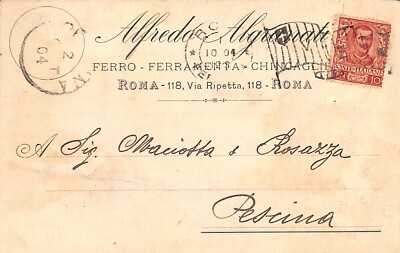 Alfredo Algranati
FERRO - FERRAMENTA - CHINCAGLIE
ROMA - 118, Via Ripetta, 118 - ROMA
RO
10 04
2
04
NA
POSTE ITALIANE
10
A Sig. Maciotta e Rosazza
Pescina